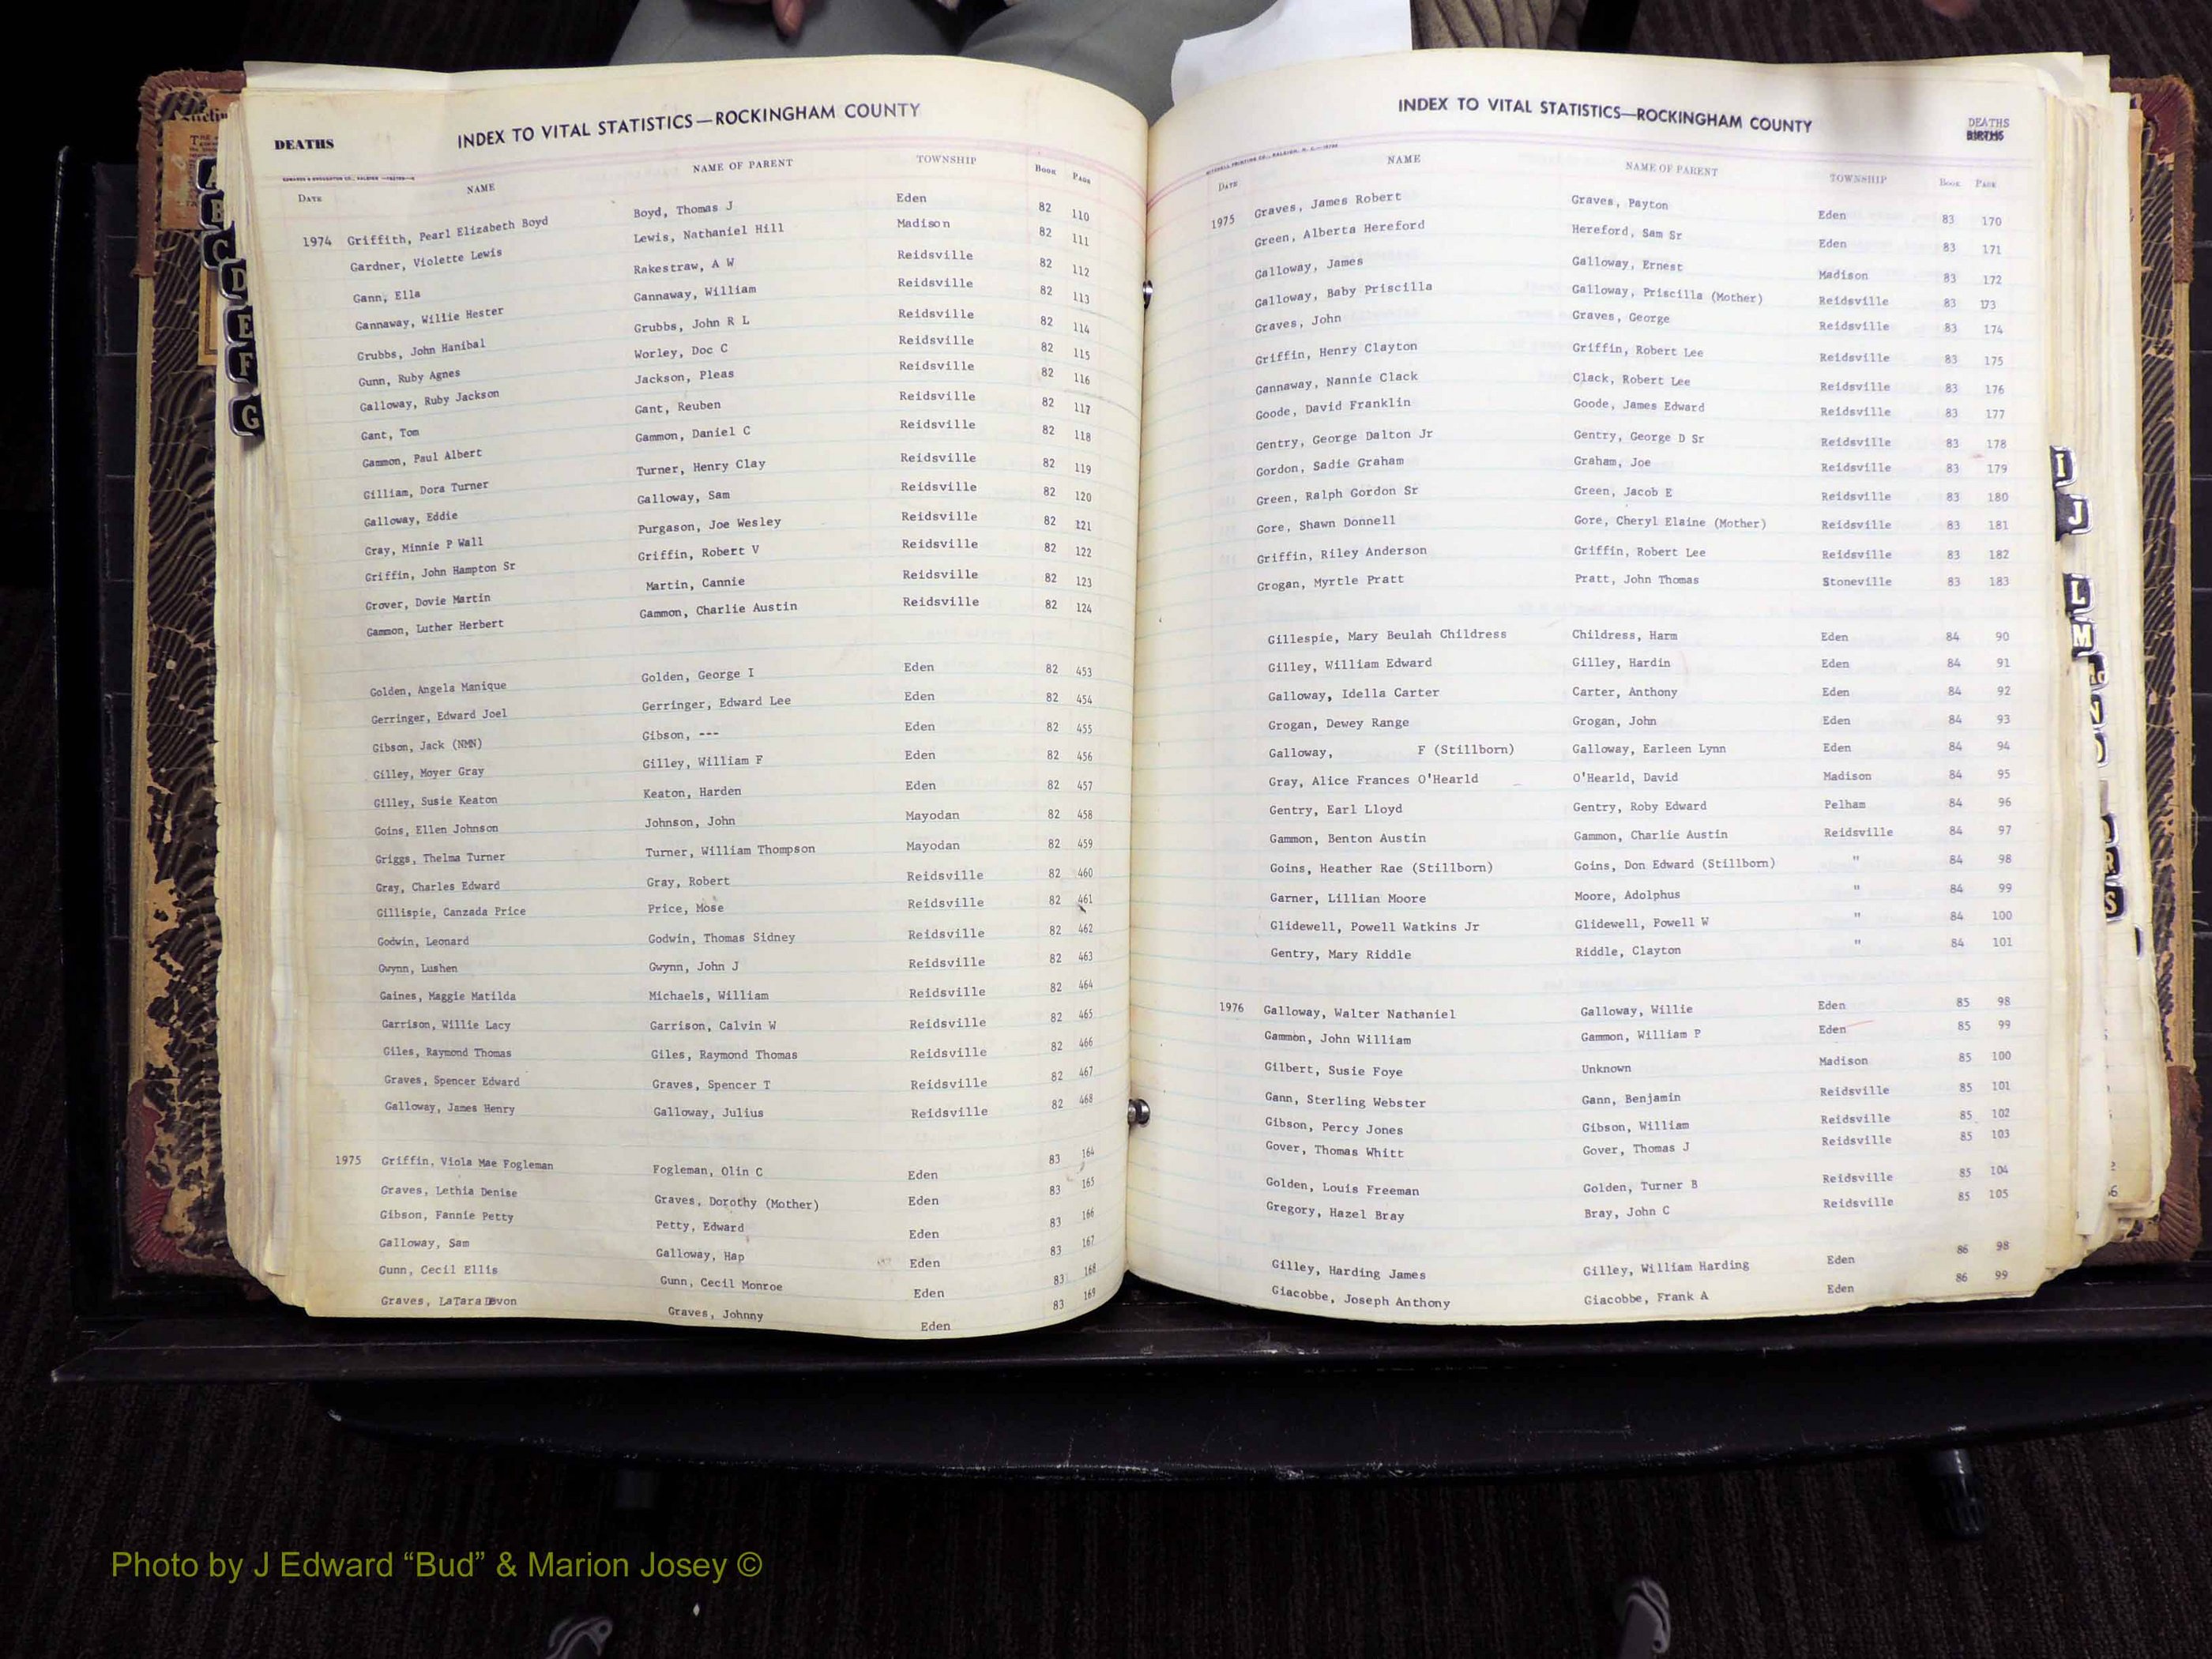 DEATHS
INDEX TO VITAL STATISTICS—ROCKINGHAM COUNTY
DATE NAME NAME OF PARENT TOWNSHIP BOOK PAGE
1974 Griffith, Pearl Elizabeth Boyd Boyd, Thomas J Eden 82 110
Gardner, Violette Lewis Lewis, Nathaniel Hill Madison 82 111
Gann, Ella Rakestraw, A W Reidsville 82 112
Gannaway, Willie Hester Gannaway, William Reidsville 82 113
Grubbs, John Hanibal Grubbs, John R L Reidsville 82 114
Gunn, Ruby Agnes Worley, Doc C Reidsville 82 115
Galloway, Ruby Jackson Jackson, Pleas Reidsville 82 116
Gant, Tom Gant, Reuben Reidsville 82 117
Gammon, Paul Albert Gammon, Daniel C Reidsville 82 118
Gilliam, Dora Turner Turner, Henry Clay Reidsville 82 119
Galloway, Eddie Galloway, Sam Reidsville 82 120
Gray, Minnie P Wall Purgason, Joe Wesley Reidsville 82 121
Griffin, John Hampton Sr Griffin, Robert V Reidsville 82 122
Grover, Dovie Martin Martin, Cannie Reidsville 82 123
Gammon, Luther Herbert Gammon, Charlie Austin Reidsville 82 124
Golden, Angela Manique Golden, George I Eden 82 453
Gerringer, Edward Joel Gerringer, Edward Lee Eden 82 454
Gibson, Jack (NMN) Gibson, --- Eden 82 455
Gilley, Moyer Gray Gilley, William F Eden 82 456
Gilley, Susie Keaton Keaton, Harden Eden 82 457
Goins, Ellen Johnson Johnson, John Mayodan 82 458
Griggs, Thelma Turner Turner, William Thompson Mayodan 82 459
Gray, Charles Edward Gray, Robert Reidsville 82 460
Gillispie, Canzada Price Price, Mose Reidsville 82 461
Godwin, Leonard Godwin, Thomas Sidney Reidsville 82 462
Gwynn, Lushen Gwynn, John J Reidsville 82 463
Gaines, Maggie Matilda Michaels, William Reidsville 82 464
Garrison, Willie Lacy Garrison, Calvin W Reidsville 82 465
Giles, Raymond Thomas Giles, Raymond Thomas Reidsville 82 466
Graves, Spencer Edward Graves, Spencer T Reidsville 82 467
Galloway, James Henry Galloway, Julius Reidsville 82 468
1975 Griffin, Viola Mae Fogleman Fogleman, Olin C Eden 83 164
Graves, Lethia Denise Graves, Dorothy (Mother) Eden 83 165
Gibson, Fannie Petty Petty, Edward Eden 83 166
Galloway, Sam Galloway, Hap Eden 83 167
Gunn, Cecil Ellis Gunn, Cecil Monroe Eden 83 168
Graves, LaTara Devon Graves, Johnny Eden 83 169
INDEX TO VITAL STATISTICS—ROCKINGHAM COUNTY
DEATHS
BIRTHS
DATE NAME NAME OF PARENT TOWNSHIP BOOK PAGE
1975 Graves, James Robert Graves, Payton Eden 83 170
Green, Alberta Hereford Hereford, Sam Sr Eden 83 171
Galloway, James Galloway, Ernest Madison 83 172
Galloway, Baby Priscilla Galloway, Priscilla (Mother) Reidsville 83 173
Graves, John Graves, George Reidsville 83 174
Griffin, Henry Clayton Griffin, Robert Lee Reidsville 83 175
Gannaway, Nannie Clack Clack, Robert Lee Reidsville 83 176
Goode, David Franklin Goode, James Edward Reidsville 83 177
Gentry, George Dalton Jr Gentry, George D Sr Reidsville 83 178
Gordon, Sadie Graham Graham, Joe Reidsville 83 179
Green, Ralph Gordon Sr Green, Jacob E Reidsville 83 180
Gore, Shawn Donnell Gore, Cheryl Elaine (Mother) Reidsville 83 181
Griffin, Riley Anderson Griffin, Robert Lee Reidsville 83 182
Grogan, Myrtle Pratt Pratt, John Thomas Stoneville 83 183
Gillespie, Mary Beulah Childress Childress, Harm Eden 84 90
Gilley, William Edward Gilley, Hardin Eden 84 91
Galloway, Idella Carter Carter, Anthony Eden 84 92
Grogan, Dewey Range Grogan, John Eden 84 93
Galloway, F (Stillborn) Galloway, Earleen Lynn Eden 84 94
Gray, Alice Frances O'Hearld O'Hearld, David Madison 84 95
Gentry, Earl Lloyd Gentry, Roby Edward Pelham 84 96
Gammon, Benton Austin Gammon, Charlie Austin Reidsville 84 97
Goins, Heather Rae (Stillborn) Goins, Don Edward (Stillborn) " 84 98
Garner, Lillian Moore Moore, Adolphus " 84 99
Glidewell, Powell Watkins Jr Glidewell, Powell W " 84 100
Gentry, Mary Riddle Riddle, Clayton " 84 101
1976 Galloway, Walter Nathaniel Galloway, Willie Eden 85 98
Gammon, John William Gammon, William P Eden 85 99
Gilbert, Susie Foye Unknown Madison 85 100
Gann, Sterling Webster Gann, Benjamin Reidsville 85 101
Gibson, Percy Jones Gibson, William Reidsville 85 102
Gover, Thomas Whitt Gover, Thomas J Reidsville 85 103
Golden, Louis Freeman Golden, Turner B Reidsville 85 104
Gregory, Hazel Bray Bray, John C Reidsville 85 105
Gilley, Harding James Gilley, William Harding Eden 86 98
Giacobbe, Joseph Anthony Giacobbe, Frank A Eden 86 99
A
B
C
D
E
F
G
I
J
L
M
N
R
S
Photo by J Edward “Bud” & Marion Josey ©